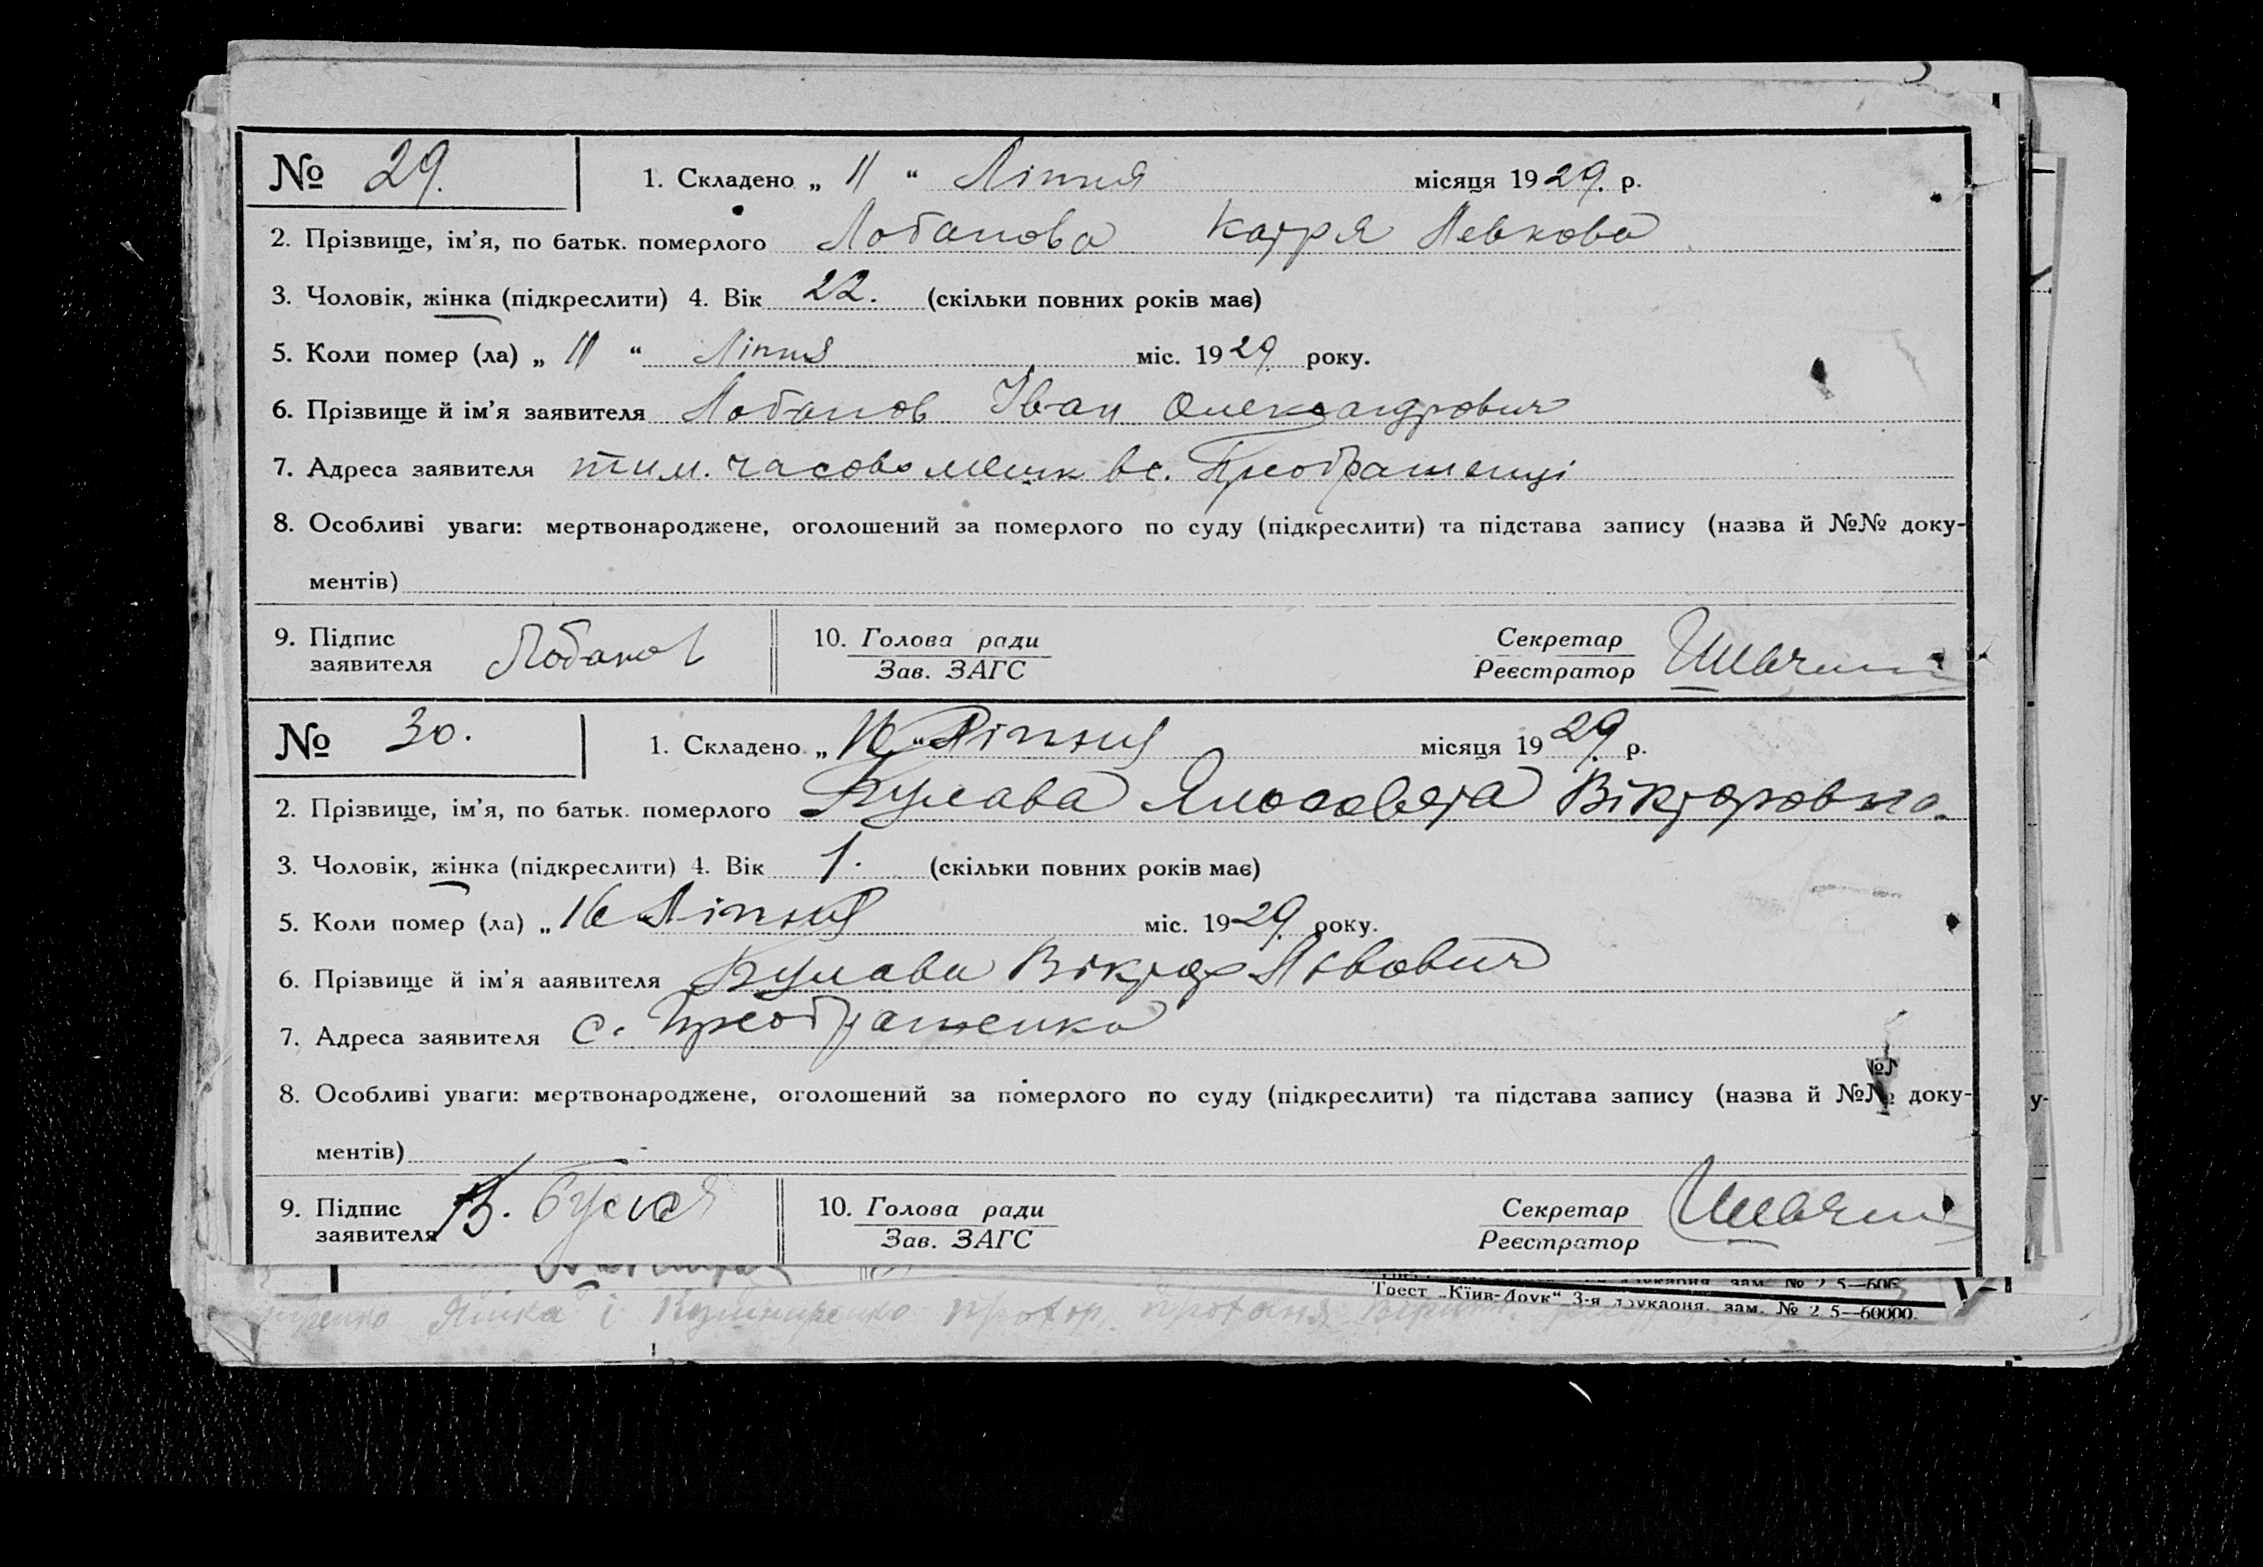 № 29. 1. Складено „ 11 “ Ліпня місяця 1929. р.
2. Прізвище, ім’я, по батьк. померлого Лобанова Катря Левкова
3. Чоловік, жінка (підкреслити) 4. Вік 22. (скільки повних років має)
5. Коли помер (ла) „ 11 “ Ліпня міс. 1929 року.
6. Прізвище й ім’я заявителя Лобанов Іван Олександрович
7. Адреса заявителя тим. часово мешк в с. Преображенці
8. Особливі уваги: мертвонароджене, оголошений за померлого по суду (підкреслити) та підстава запису (назва й №№ доку-
ментів)
9. Підпис заявителя Лобанов 10. Голова ради Секретар
Зав. ЗАГС Реєстратор
№ 30. 1. Складено „ 16 “ Ліпня місяця 1929 р.
2. Прізвище, ім’я, по батьк. померлого Вікторовна.
3. Чоловік, жінка (підкреслити) 4. Вік 1. (скільки повних років має)
5. Коли помер (ла) „ 16 Ліпня міс. 1929. року.
6. Прізвище й ім’я заявителя Віктор Львович
7. Адреса заявителя с. Преображенка
8. Особливі уваги: мертвонароджене, оголошений за померлого по суду (підкреслити) та підстава запису (назва й №№ доку-
ментів)
9. Підпис заявителя В. 10. Голова ради Секретар
Зав. ЗАГС Реєстратор
Трест „Київ-Друк“ 3-я друкарня, зам. № 2 5—60000.